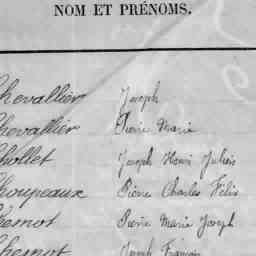 NOM ET PRÉNOMS.
Chevallier Joseph
Chevallier Pierre Marie
Chollet Joseph Henri Julien
Choupeaux Pierre Charles Félix
Chemot Pierre Marie Joseph
Chemot Joseph François